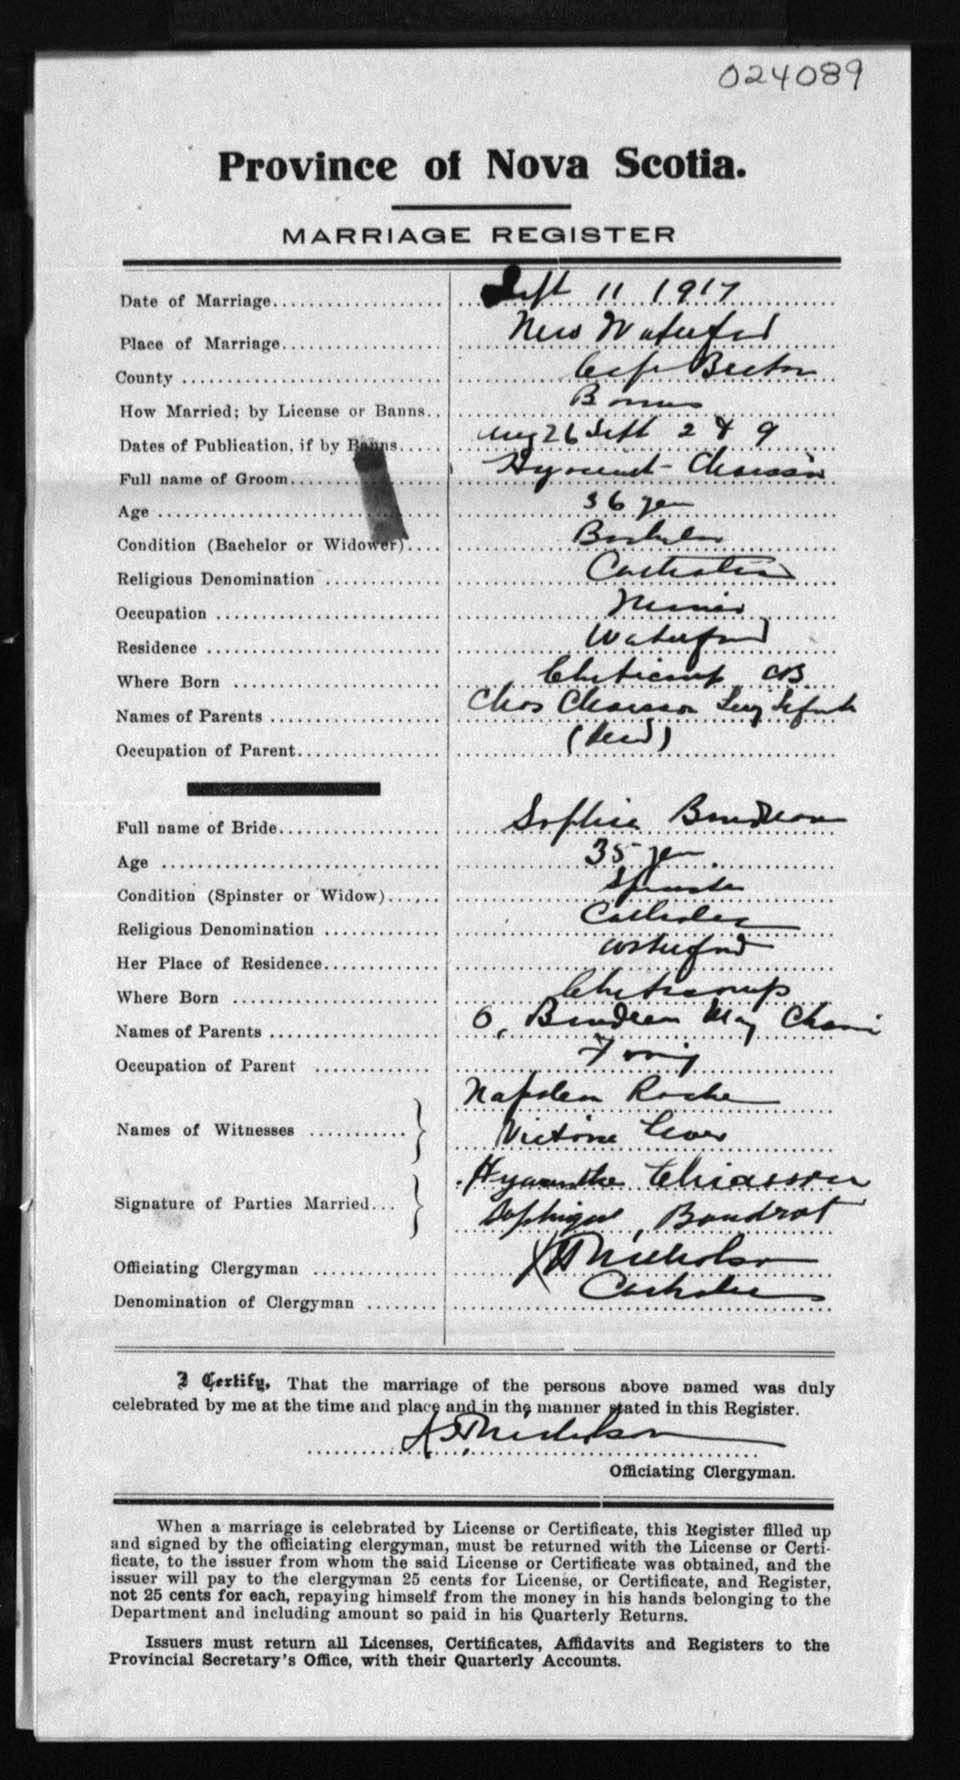 024089
Province of Nova Scotia.
MARRIAGE REGISTER
Date of Marriage Sept 11 1917
Place of Marriage New Waterford
County Cape Breton
How Married; by License or Banns Banns
Dates of Publication, if by Banns Aug 26 Sept 2 & 9
Full name of Groom Hyacinth Chaisson
Age 36 yrs
Condition (Bachelor or Widower) Bachelor
Religious Denomination Catholic
Occupation Miner
Residence Waterford
Where Born Cheticamp CB
Names of Parents Chas Chaisson Lucy
Occupation of Parent (Dead)
Full name of Bride Sophie Boudreau
Age 35 yrs
Condition (Spinster or Widow) Spinster
Religious Denomination Catholic
Her Place of Residence Waterford
Where Born Cheticamp
Names of Parents Boudreau May
Occupation of Parent
Names of Witnesses Napoleon Roche
Victorie
Signature of Parties Married Hyacinthe Chiasson
Sophique Boudrot
Officiating Clergyman Nicholson
Denomination of Clergyman Catholic
I Certify, That the marriage of the persons above named was duly
celebrated by me at the time and place and in the manner stated in this Register.
Nicholson
Officiating Clergyman.
When a marriage is celebrated by License or Certificate, this Register filled up
and signed by the officiating clergyman, must be returned with the License or Certi-
ficate, to the issuer from whom the said License or Certificate was obtained, and the
issuer will pay to the clergyman 25 cents for License, or Certificate, and Register,
not 25 cents for each, repaying himself from the money in his hands belonging to the
Department and including amount so paid in his Quarterly Returns.
Issuers must return all Licenses, Certificates, Affidavits and Registers to the
Provincial Secretary's Office, with their Quarterly Accounts.